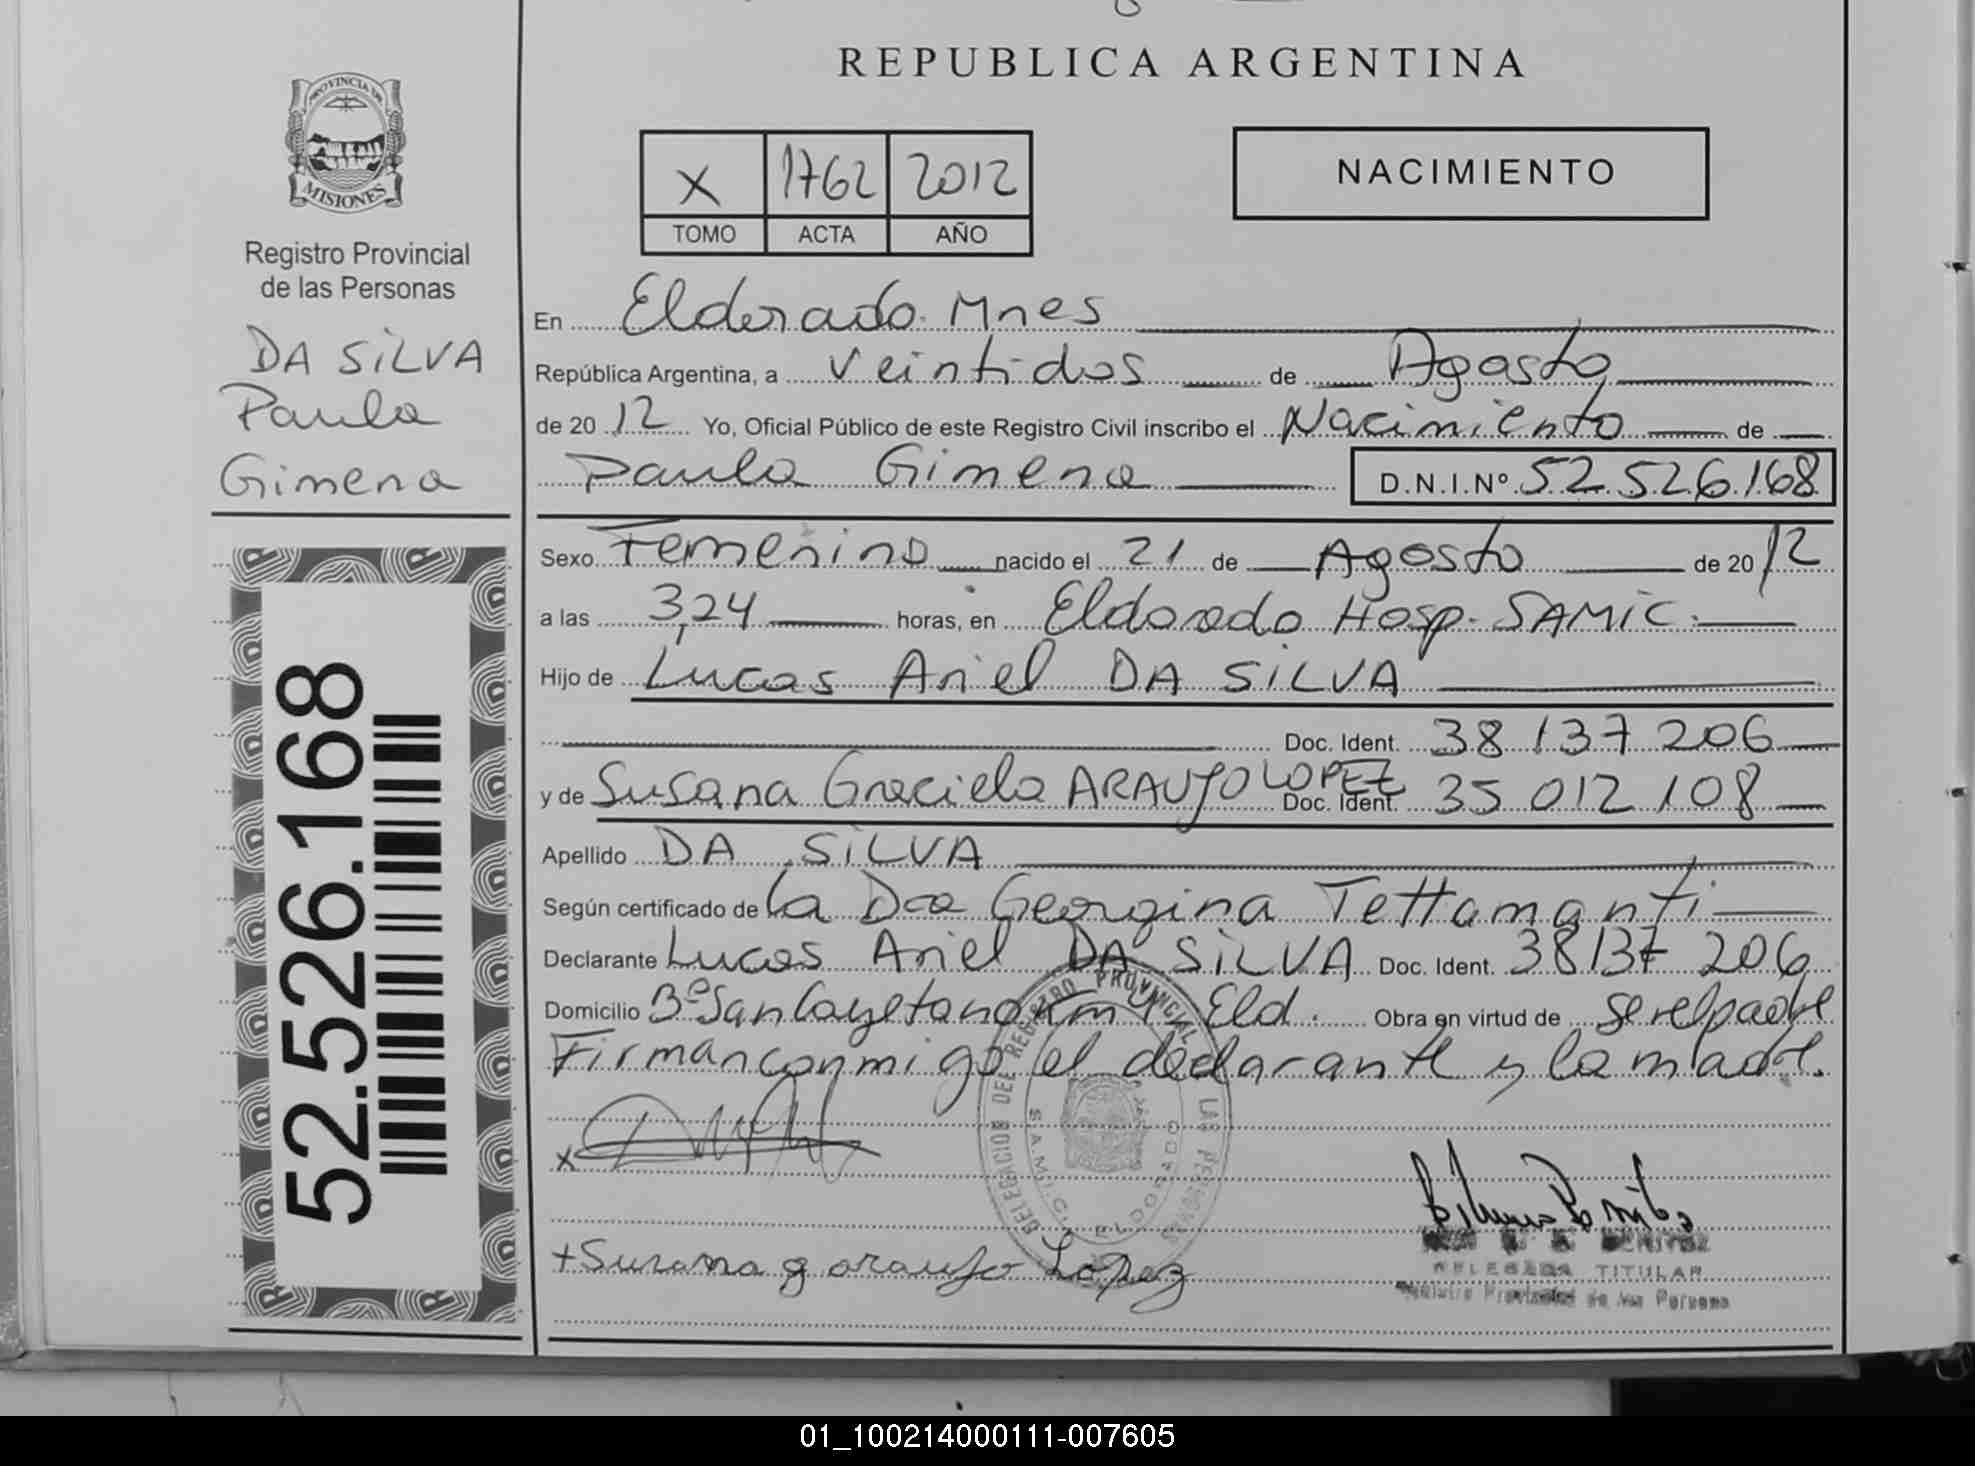 REPUBLICA ARGENTINA
PROVINCIA DE
MISIONES
Registro Provincial
de las Personas
DA SiLVA
Paula
Gimena
52.526.168
X 1762 2012
TOMO ACTA AÑO
NACIMIENTO
En Eldorado. Mnes
República Argentina, a veintidos de Agosto
de 2012 Yo, Oficial Público de este Registro Civil inscribo el Nacimiento de
Paula Gimena D.N.I.Nº 52.526.168
Sexo Femenino nacido el 21 de Agosto de 2012
a las 3,24 horas, en Eldorado Hosp. SAMiC.
Hijo de Lucas Ariel DA SiLVA
Doc. Ident. 38 137 206
y de Susana Graciela ARAUJO LOPEZ Doc. Ident. 35 012 108
Apellido DA SiLVA
Según certificado de La Dra Georgina Tettamanti
Declarante Lucas Ariel DA SiLVA Doc. Ident. 38137 206
Domicilio Bº San Cayetano Km Eld. Obra en virtud de ser el padre
Firman conmigo el declarante y la madre.
x
DELEGACION DEL REGISTRO PROVINCIAL LAS PERSONAS
S.A.M.I.C. ELDORADO
+Susana g araujo Lopez
BENITEZ
DELEGADA TITULAR
Registro Provincial de las Personas
01_100214000111-007605